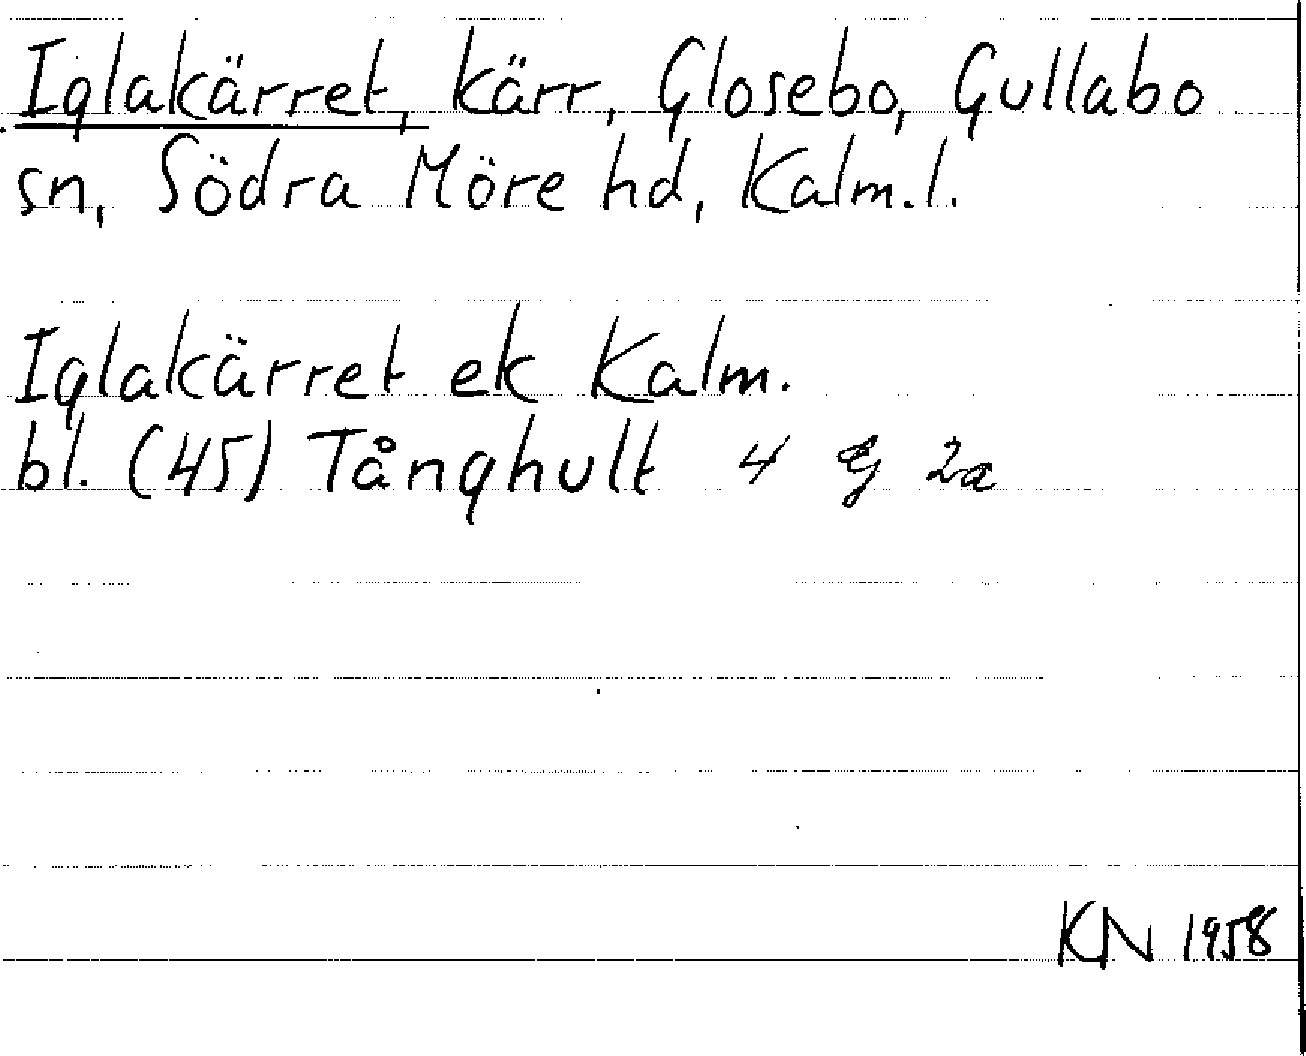 Iglakärret, kärr, Glosebo, Gullabo
sn, Södra Möre hd, Kalm.l.
Iglakärret ek Kalm.
bl. (45) Tånghult 4 G 2a
KN 1958